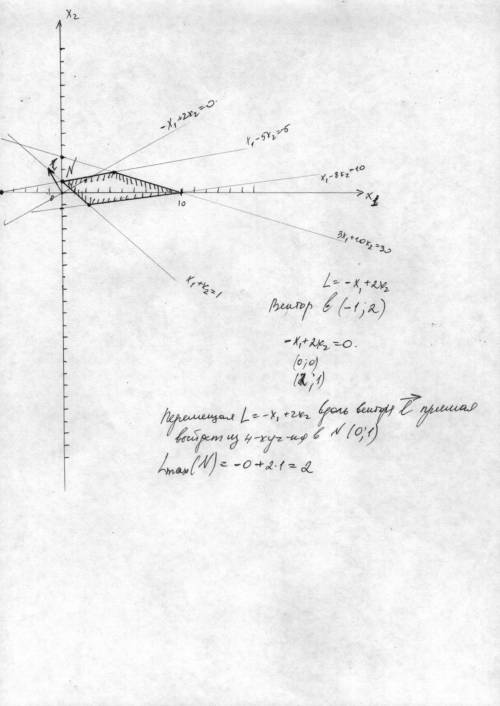 x₂
-x₁+2x₂=0.
x₁-5x₂=5
N
x₁-8x₂=10
0
10
3x₁+10x₂=30
x₁+x₂=1
L=-x₁+2x₂
Вектор в (-1;2)
-x₁+2x₂=0.
(0;0)
(2;1)
Перемещая L=-x₁+2x₂ вдоль вектора ℓ прямая
выйдет из 4-хуг-ка в N (0;1)
Lmax(N)=-0+2·1=2